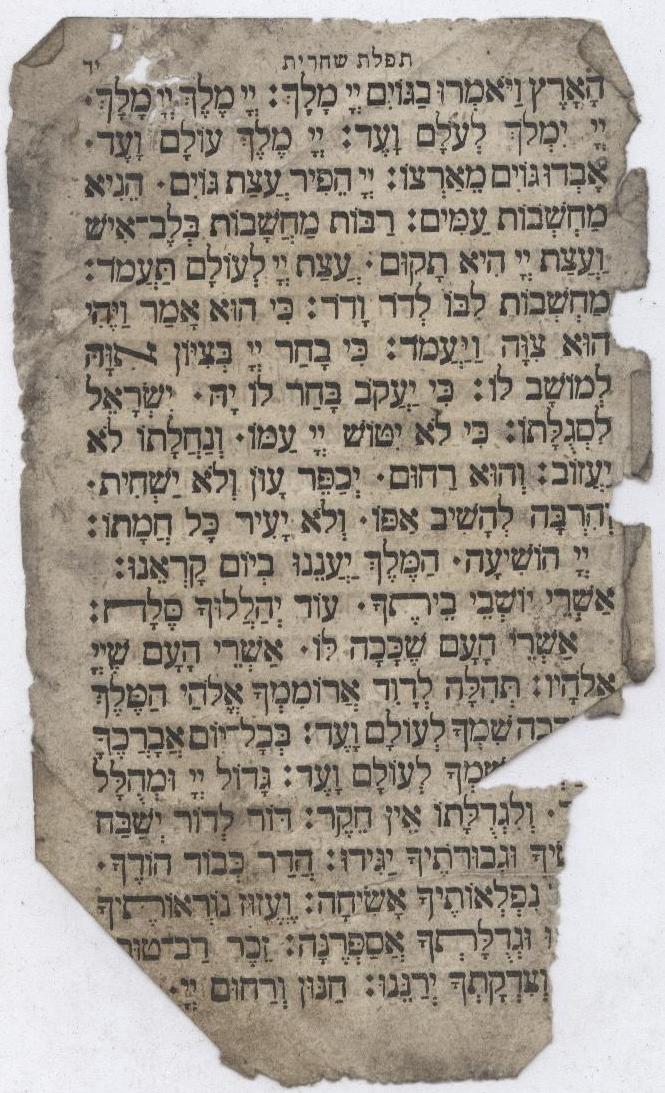 תפלת שחרית יד
הָאָרֶץ וַיֹּאמְרוּ בַגּוֹיִם יְיָ מָלָךְ: יְיָ מֶלֶךְ יְיָ מָלָךְ·
יְיָ יִמְלֹךְ לְעֹלָם וָעֶד: יְיָ מֶלֶךְ עוֹלָם וָעֶד·
אָבְדוּ גוֹיִם מֵאַרְצוֹ: יְיָ הֵפִיר עֲצַת גּוֹיִם· הֵנִיא
מַחְשְׁבוֹת עַמִּים: רַבּוֹת מַחֲשָׁבוֹת בְּלֶב־אִישׁ
וַעֲצַת יְיָ הִיא תָקוּם· עֲצַת יְיָ לְעוֹלָם תַּעֲמֹד:
מַחְשְׁבוֹת לִבּוֹ לְדֹר וָדֹר: כִּי הוּא אָמַר וַיֶּהִי
הוּא צִוָּה וַיַּעֲמֹד: כִּי בָחַר יְיָ בְּצִיּוֹן אִוָּהּ
לְמוֹשָׁב לוֹ: כִּי יַעֲקֹב בָּחַר לוֹ יָהּ· יִשְׂרָאֵל
לִסְגֻלָּתוֹ: כִּי לֹא יִטּוֹשׁ יְיָ עַמּוֹ· וְנַחֲלָתוֹ לֹא
יַעֲזוֹב: וְהוּא רַחוּם· יְכַפֵּר עָוֹן וְלֹא יַשְׁחִית·
וְהִרְבָּה לְהָשִׁיב אַפּוֹ· וְלֹא יָעִיר כָּל חֲמָתוֹ:
יְיָ הוֹשִׁיעָה· הַמֶּלֶךְ יַעֲנֵנוּ בְיוֹם קָרְאֵנוּ:
אַשְׁרֵי יוֹשְׁבֵי בֵיתֶךָ· עוֹד יְהַלְלוּךָ סֶּלָה:
אַשְׁרֵי הָעָם שֶׁכָּכָה לּוֹ· אַשְׁרֵי הָעָם שֶׁיְיָ
אֱלֹהָיו: תְּהִלָּה לְדָוִד אֲרוֹמִמְךָ אֱלֹהַי הַמֶּלֶךְ
שִׁמְךָ לְעוֹלָם וָעֶד: בְּכָל־יוֹם אֲבָרְכֶךָּ
שִׁמְךָ לְעוֹלָם וָעֶד: גָּדוֹל יְיָ וּמְהֻלָּל
וְלִגְדֻלָּתוֹ אֵין חֵקֶר: דּוֹר לְדוֹר יְשַׁבַּח
וּגְבוּרֹתֶיךָ יַגִּידוּ: הֲדַר כְּבוֹד הוֹדֶךָ·
נִפְלְאוֹתֶיךָ אָשִׂיחָה: וֶעֱזוּז נוֹרְאוֹתֶיךָ
וּגְדֻלָּתְךָ אֲסַפְּרֶנָּה: זֵכֶר רַב־טוּבְ
וְצִדְקָתְךָ יְרַנֵּנוּ: חַנּוּן וְרַחוּם יְיָ·